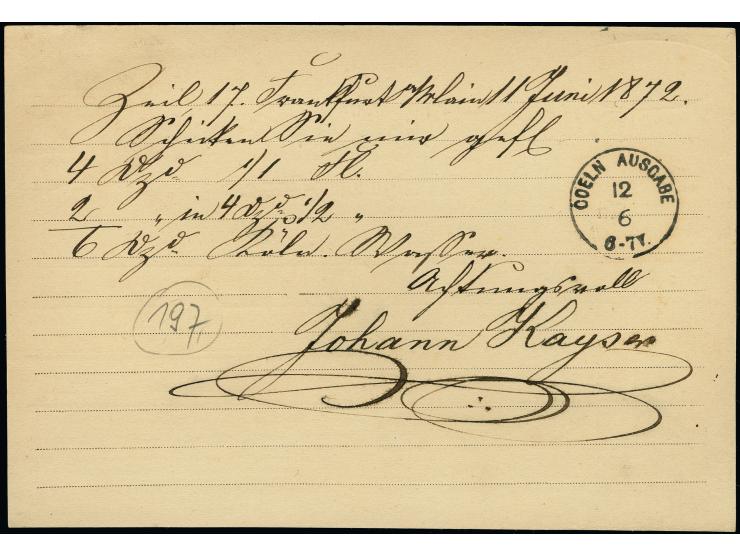 Zeil 17. Frankfurt a/Main 11 Juni 1872.
Schicken Sie mir gefl
4 Dzd 1/1 Fl.
2 " in 4 Dzd 1/2 "
6 Dzd Köln. Wasser.
Achtungsvoll
Johann Kayser
197
COELN AUSGABE
12
6
6-7V.